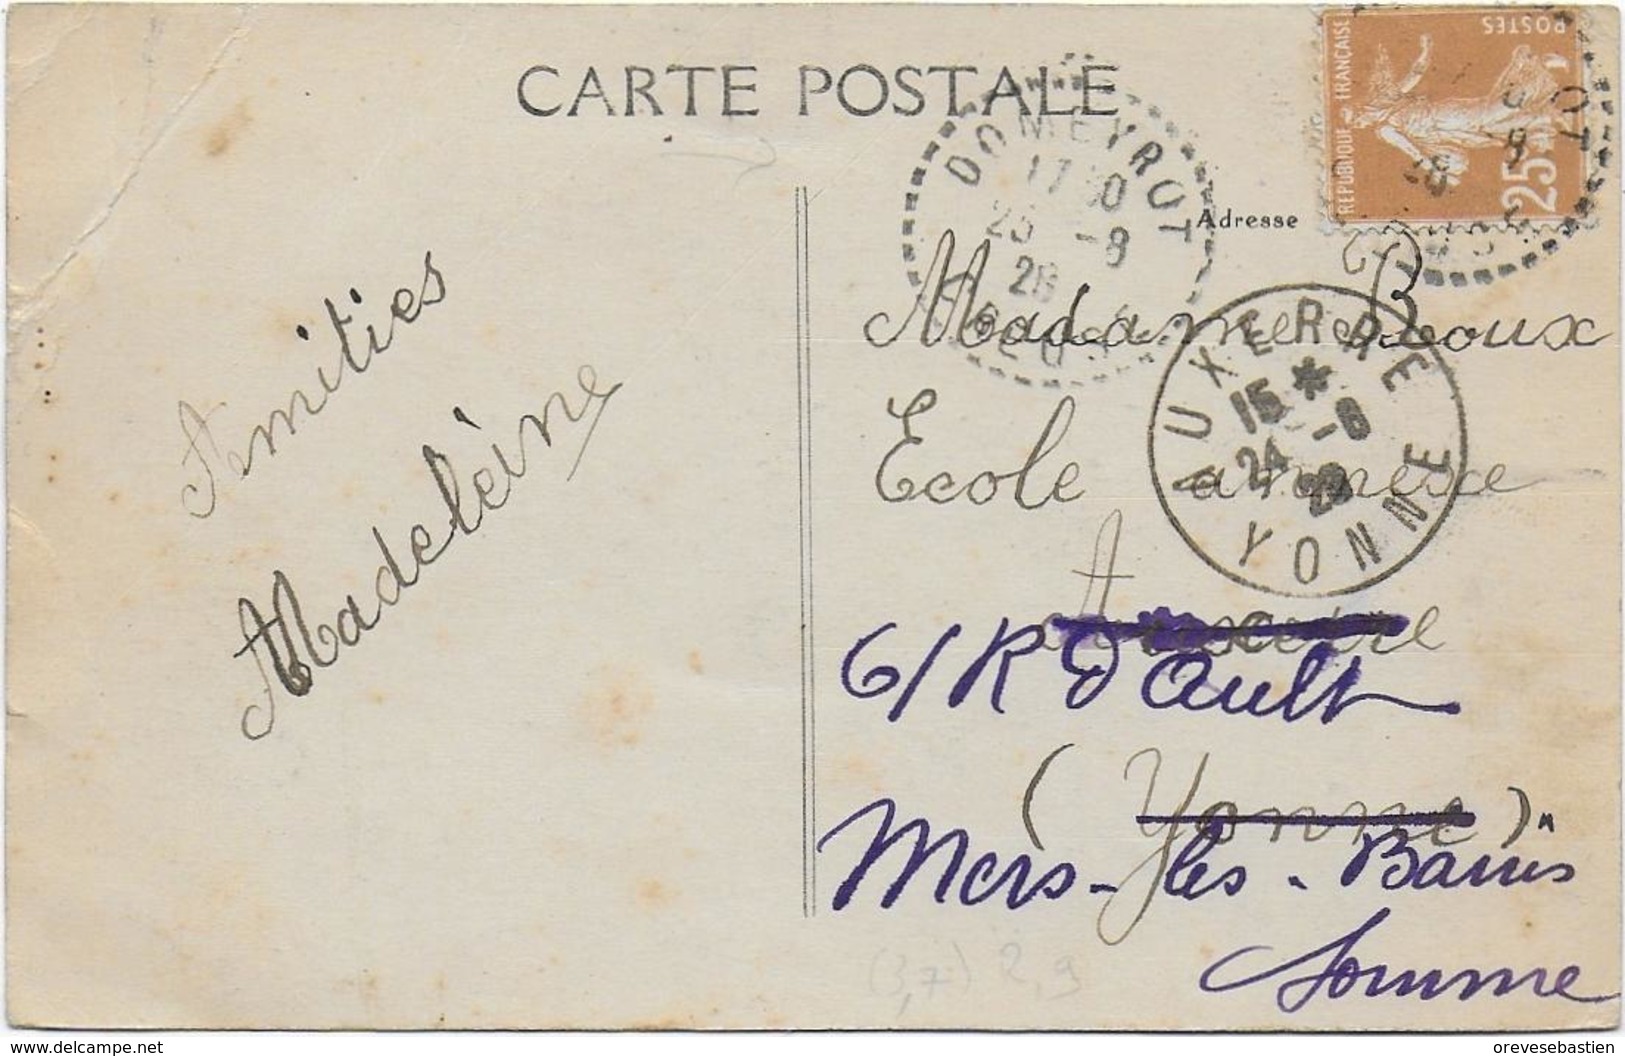 CARTE POSTALE
REPUBLIQUE FRANÇAISE
POSTES
25
DOMEYROT
17 30
23 -8
28
CREUSE
Adresse
Madame Roux
Ecole annexe
Auxerre
(Yonne)
AUXERRE
15 *
24 -8
28
YONNE
6/R d'Ault
Mers-les-Bains
Somme
Amitiés
Madeleine
(3,7) 2,9
www.delcampe.net
orevesebastien